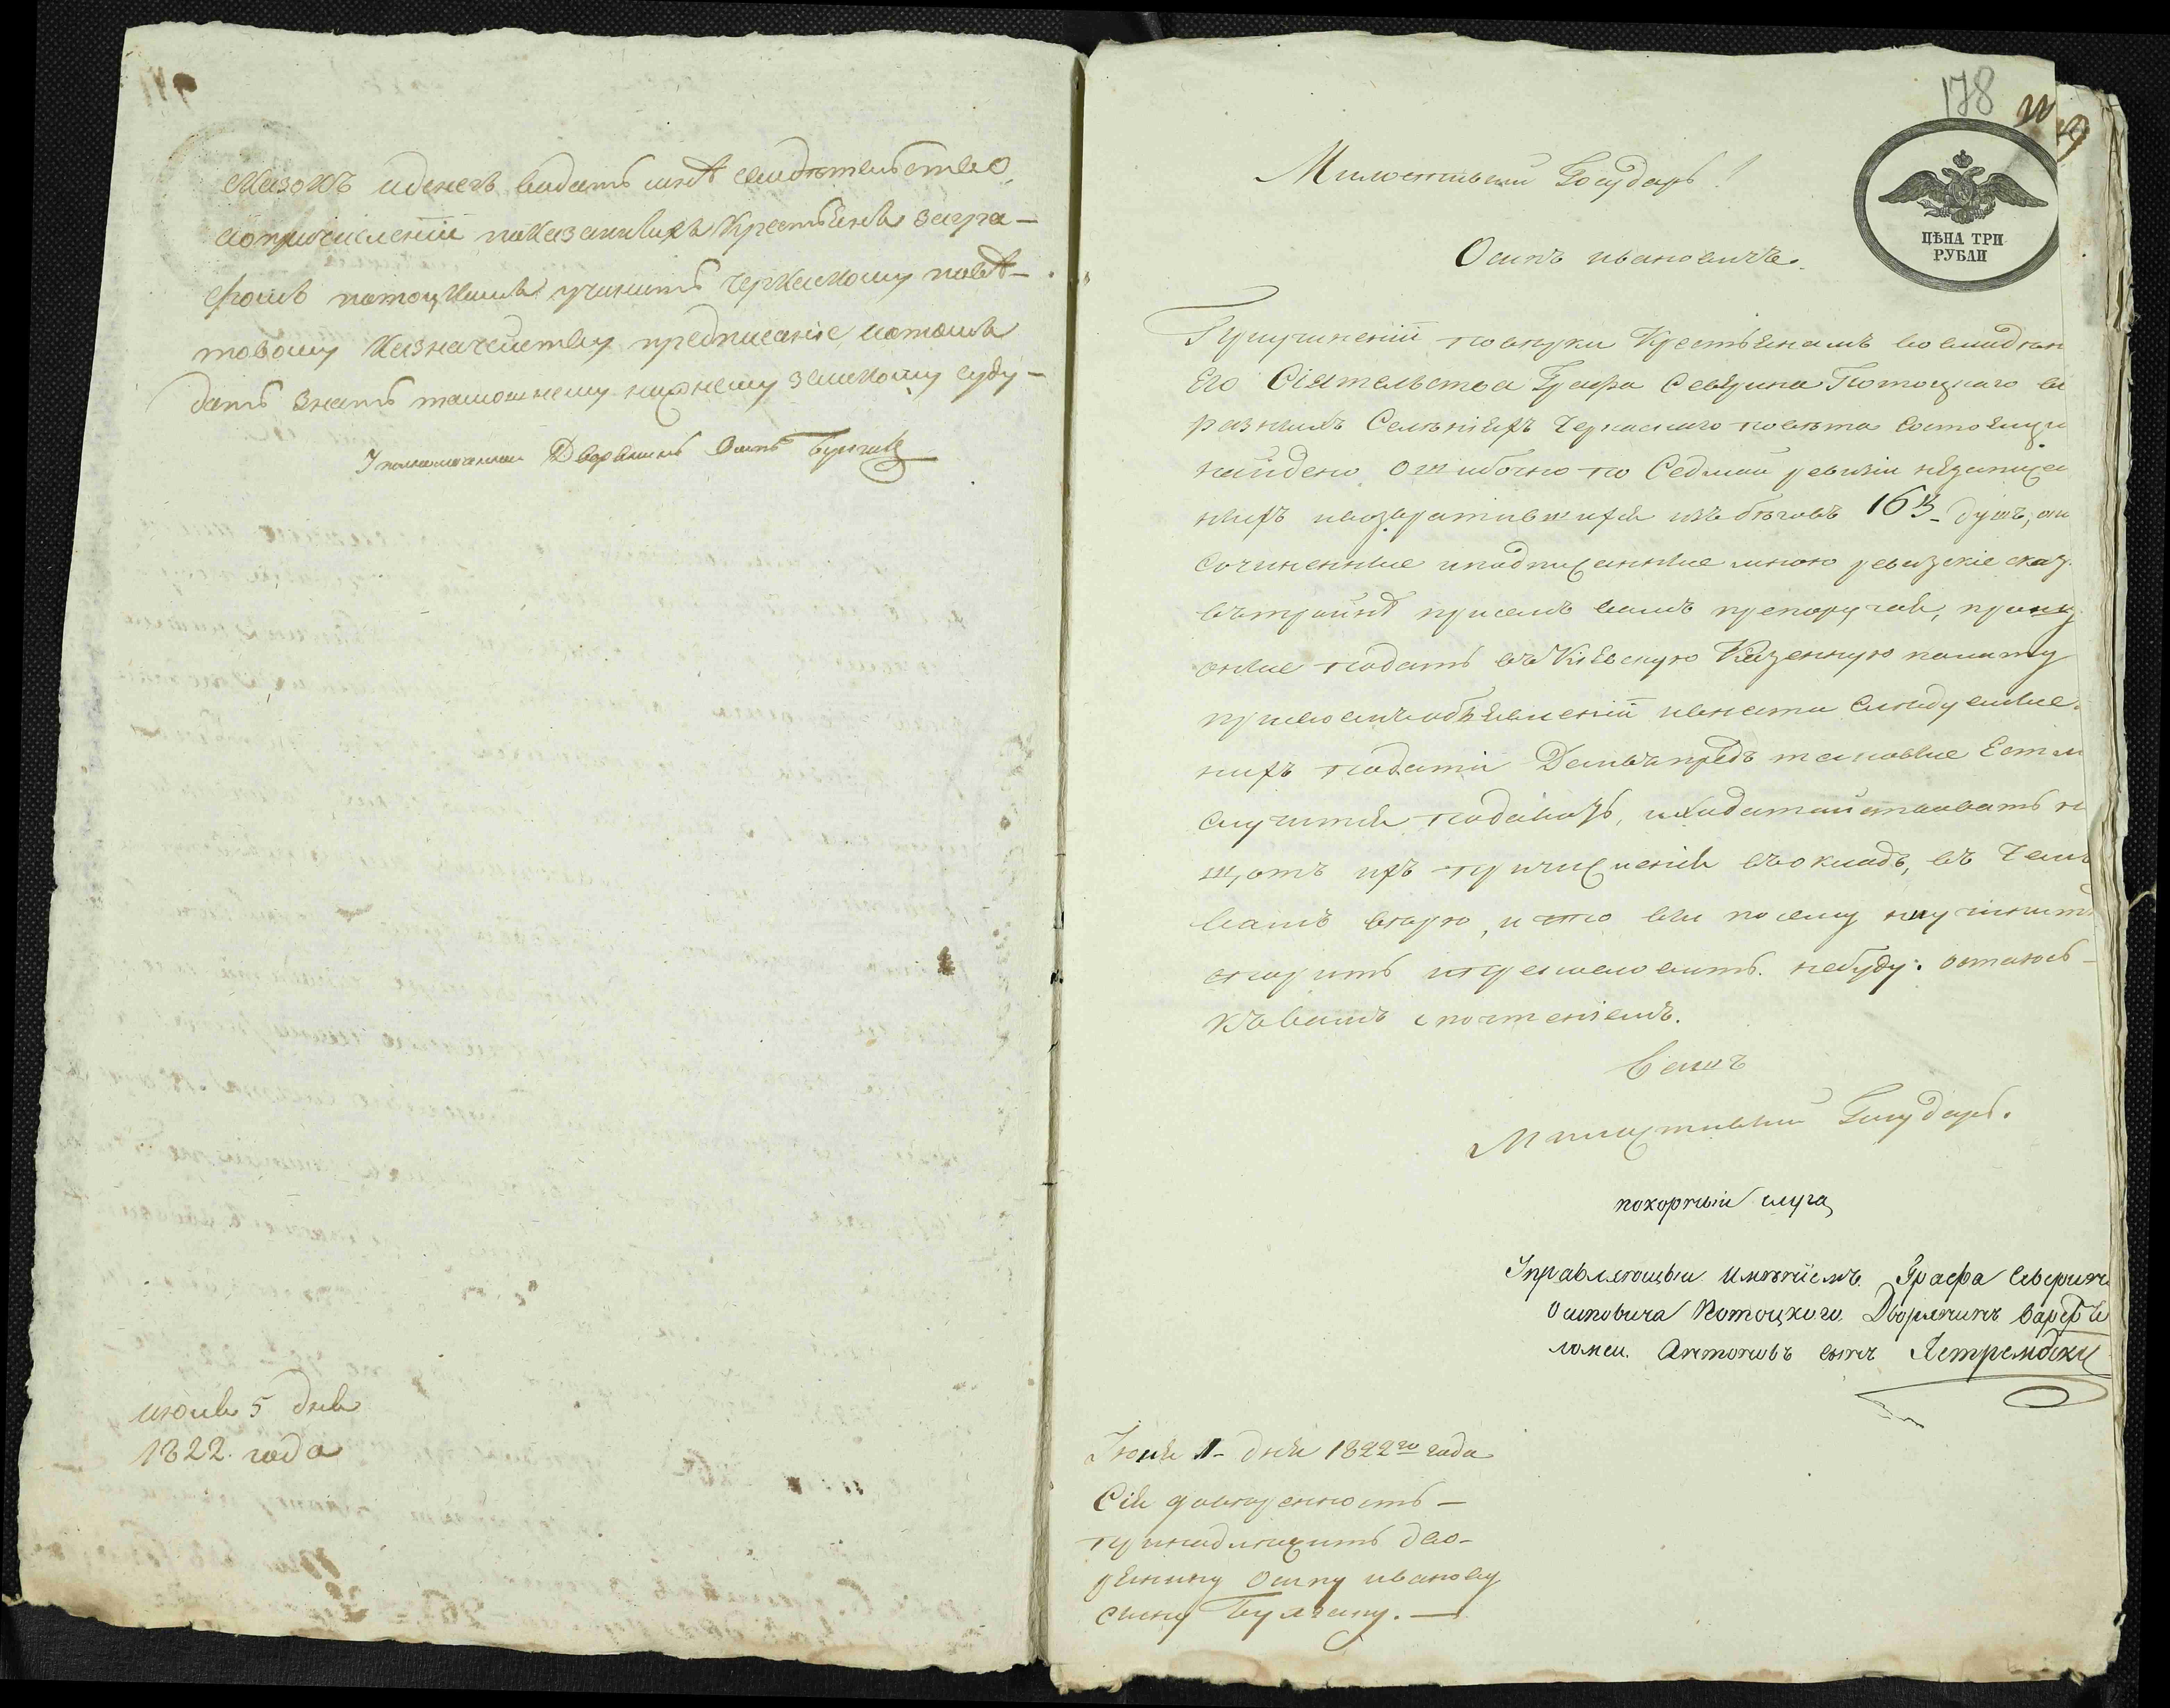 сказокъ иденегъ видать мнѣ свидѣтельство
опричислѣніи показанныхъ Крестьянъ загра-
фомъ потоцкимъ учинить черкаскому повѣ-
товому Казначейству предписаніе, и отомъ
дать знать тамошнему нижнему земскому суду-
Уполномоченный Дворянинъ Осипъ Булгинъ
июня 5 дня
1822. года
178
ЦѢНА ТРИ
РУБЛИ
Милостивый Государь!
Осипъ ивановичъ.
При учиненіи повѣрки Крестьянамъ во владѣн
Его Сіятельства Графа Северина Потоцкаго въ
разныхъ Селеніяхъ Черкаскаго повѣта Состоящи
найдено ошибочно по Седмой ревизіи незаписа
ныхъ ивозвратившихся изъ бѣговъ 163 душъ,
сочиненные иподписанные мною ревизскіе сказ
втройнѣ присемъ вамъ препоручая, прошу
оные подать въ Кіевскую Казенную палату
присвоемъ объявленіи ивнести слѣдуемые
нихъ подати Даивпредь таковые Естли
случится подавать, иходатайствовать
щотъ ихъ причисленія въ окладъ, въ Чемъ
вамъ вѣрю, и что вы по сему ни учините
спорить и прекословить небуду: остаюсь-
къ вамъ спочтеніемъ.
Вашъ
Милостивый Государь.
покорный слуга
Управляющый имѣніемъ Графа Северина
Осиповича Потоцкого Дворянинъ Варфо
ломей Антоновъ сынъ Ястрембски
Июня 1- дня 1822го года
Сія доверенность-
принадлежитъ дво-
рянину Осипу иванову
сыну Булгину.-